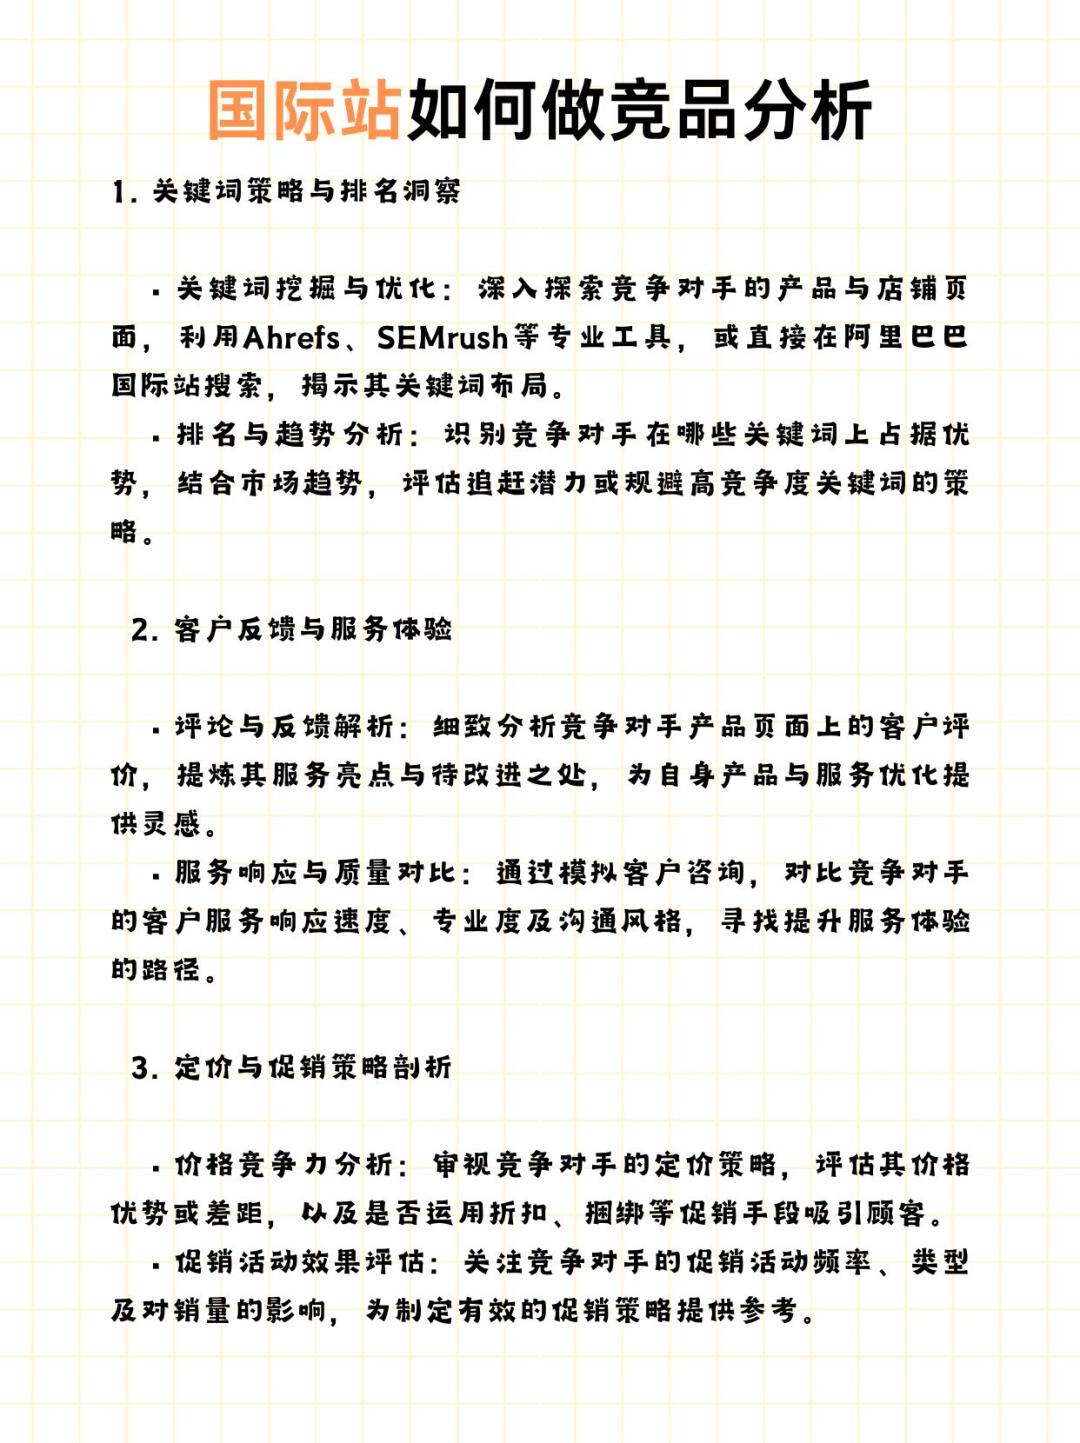 国际站如何做竞品分析
1. 关键词策略与排名洞察
· 关键词挖掘与优化：深入探索竞争对手的产品与店铺页
面，利用Ahrefs、SEMrush等专业工具，或直接在阿里巴巴
国际站搜索，揭示其关键词布局。
· 排名与趋势分析：识别竞争对手在哪些关键词上占据优
势，结合市场趋势，评估追赶潜力或规避高竞争度关键词的策
略。
2. 客户反馈与服务体验
· 评论与反馈解析：细致分析竞争对手产品页面上的客户评
价，提炼其服务亮点与待改进之处，为自身产品与服务优化提
供灵感。
· 服务响应与质量对比：通过模拟客户咨询，对比竞争对手
的客户服务响应速度、专业度及沟通风格，寻找提升服务体验
的路径。
3. 定价与促销策略剖析
· 价格竞争力分析：审视竞争对手的定价策略，评估其价格
优势或差距，以及是否运用折扣、捆绑等促销手段吸引顾客。
· 促销活动效果评估：关注竞争对手的促销活动频率、类型
及对销量的影响，为制定有效的促销策略提供参考。